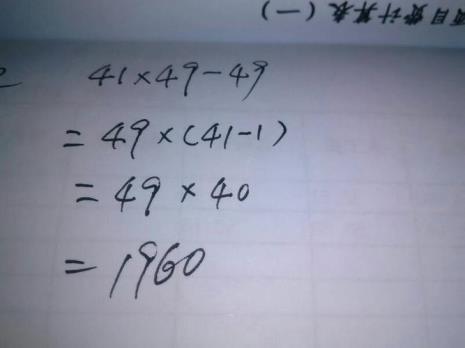 项目费计算表（一）
41×49-49
=49×(41-1)
=49×40
=1960